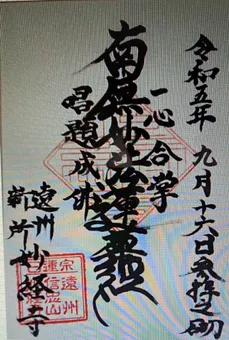 令和五年 九月十六日参拝之砌
一心合掌
南無妙法蓮華経
唱題成佛
遠州
新所 妙経寺